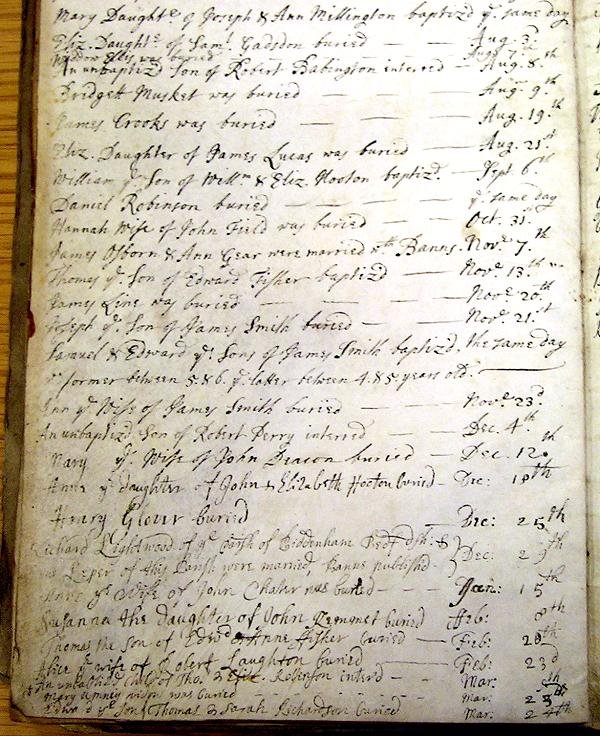 Mary Daughtr of Joseph & Ann Millington baptiz'd ye same day
Eliz. Daughtr of Saml. Gadsdon buried — — Aug. 3d
Widow Ellis was buried Aug. 7
An unbaptiz'd Son of Robert Babington interred — Aug. 8.th
Bridgett Musket was buried — — — Aug. 9th
James Crooks was buried — — — Aug. 19.th
Eliz. Daughter of James Lucas was buried — Aug. 21st
William ye. Son of Willm & Eliz. Hooton baptiz'd. — Sept. 6.th
Daniel Robinson buried — — — ye. same day
Hannah Wife of John Field was buried — Oct. 31.
James Osborn & Ann Gear were married wth Banns. Novr. 7.th
Thomas ye. Son of Edward Fisher baptiz'd — Novr. 13.th
James Line was buried — — — Novr. 20.th
Joseph ye. Son of James Smith buried — — Novr. 21.st
Samuel & Edward ye. Sons of James Smith baptiz'd. the same day
ye former between 5 & 6. ye. latter between 4. & 5 years old.
Ann ye. Wife of James Smith buried — — Novr. 23d
An unbaptiz'd Son of Robert Perry interred — — Dec. 4.th
Mary ye. Wife of John Deacon buried — Dec. 12.th
Anne ye daughter of John & Elizabeth Hooton buried — Dec: 18th
Henry Glour buried Dec: 25th
Richard Lightwood of ye parish of Biddenham
of this Parish were married Banns published — Dec: 29th
ye Wife of John Chater was buried — Jan: 15th
Susanna the daughter of John buried Feb: 8th
Thomas the son of Edwd & Anne Fisher buried — Feb: 20th
Alice ye wife of Robert Laughton buried — Feb: 23d
An unbaptized child of Tho. & Eliz. Robinson interd — Mar:
Mary widow was buried — — Mar:
Edward ye son of Thomas & Sarah Richardson buried Mar: 24th